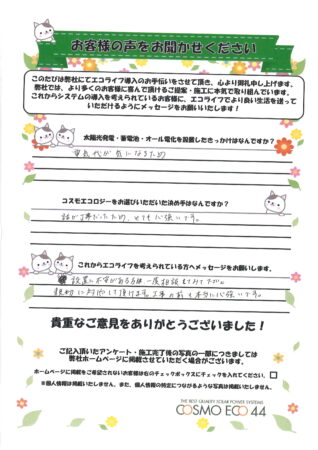 お客様の声をお聞かせください
このたびは弊社にてエコライフ導入のお手伝いをさせて頂き、心より御礼申し上げます。
弊社では、より多くのお客様に喜んで頂けるご提案・施工に本気で取り組んでいます。
これからシステムの導入を考えられているお客様に、エコライフでより良い生活を送って
いただけるようにメッセージをお願いいたします！
太陽光発電・蓄電池・オール電化を設置したきっかけはなんですか？
電気代が気になるため
コスモエコロジーをお選びいただいた決め手はなんですか？
話が丁寧だったため、とても心強いです。
これからエコライフを考えられている方へメッセージをお願いします。
設置に不安がある方は一度相談をしてみて
親切に対応して頂けます。工事の前も本当に心強いです。
貴重なご意見をありがとうございました！
ご記入頂いたアンケート・施工完了後の写真の一部につきましては
弊社ホームページに掲載させていただく場合がございます。
ホームページに掲載をご希望されないお客様は右のチェックボックスにチェックを入れてください。
※個人情報は掲載いたしません。また、個人情報の特定につながるような写真は掲載いたしません。
THE BEST QUALITY SOLAR POWER SYSTEMS
COSMO ECO 44